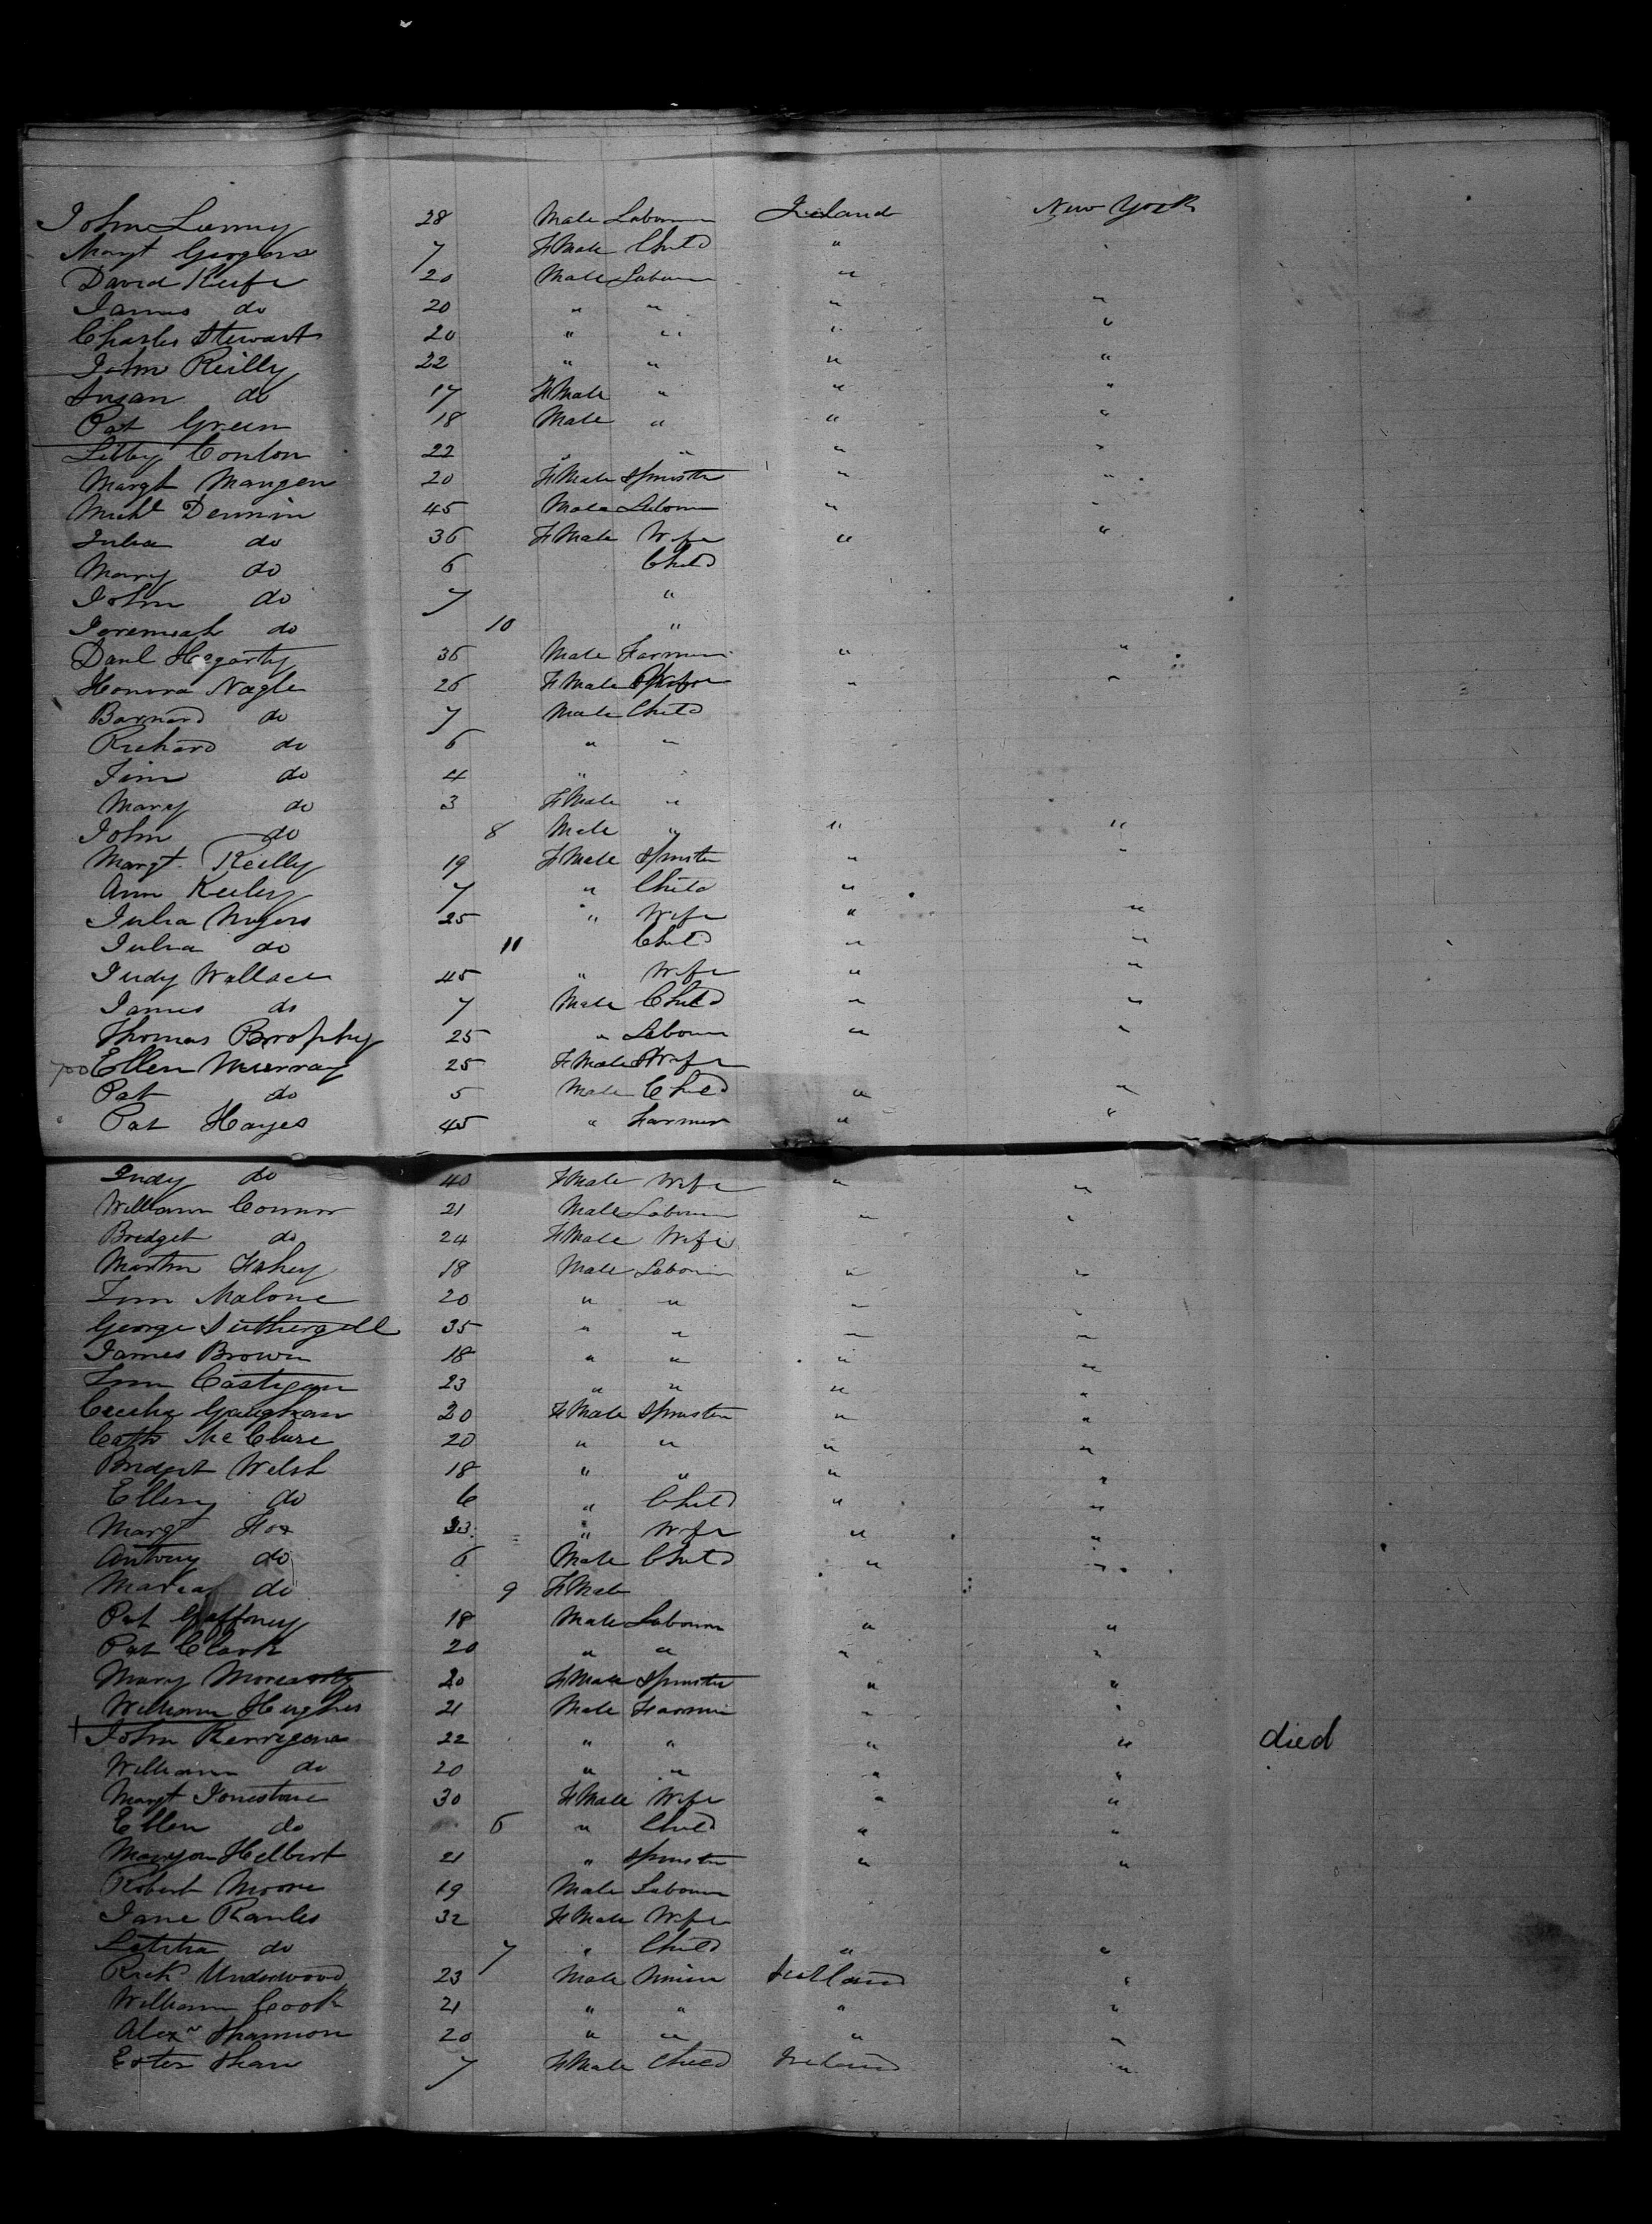 John Lunny 28 Male Labourer Ireland New York
Margt 7 F Male Child "
David Keefe 20 Male Labourer "
James do 20 " " " "
Charles Stewart 20 " " " "
John Reilly 22 " " " "
Susan do 17 F Male " " "
Pat Green 18 Male " " "
Libby Conlon 22 " " " "
Margt Mangen 20 F Male Spinster " "
Michl Dennin 45 Male Labourer " "
Julia do 36 F Male Wife " "
Mary do 6 Child
John do 7 "
Jeremiah do 10 "
Danl Hegarty 36 Male Farmer " "
Honora Nagle 26 F Male Wife " "
Barnard do 7 Male Child
Richard do 6 " "
Jim do 4 " "
Mary do 3 F Male "
John do 8 Male " " "
Margt. Reilly 19 F Male Spinster " "
Ann Keeley 7 " Child "
Julia Mugers 25 " Wife " "
Julia do 11 Child " "
Judy Wallace 45 " Wife " "
James do 7 Male Child " "
Thomas Brophy 25 " Labourer " "
700 Ellen Murray 25 F Male Wife
Pat do 5 Male Child " "
Pat Hayes 45 " Farmer " "
Judy do 40 F Male Wife " "
William Connor 21 Male Labourer " "
Bridget do 24 F Male Wife
Martin Fahey 18 Male Labourer " "
Tim Malone 20 " " " "
George Suthergill 35 " " " "
James Brown 18 " " " "
Tim Castigan 23 " " " "
Cecelia Gaughan 20 F Male Spinster " "
Cath McClure 20 " " " "
Bridget Welsh 18 " " " "
Ellen do 6 " Child " "
Margt Fox 33 " Wife " "
Antony do 6 Male Child " "
Maria do 9 F Male
Pat Gaffney 18 Male Labourer " "
Pat Clark 20 " " " "
Mary Morearty 20 F Male Spinster " "
William Hughes 21 Male Farmer " "
John Kerrigane 22 " " " " died
William do 20 " " " "
Margt Jonestone 30 F Male Wife " "
Ellen do 6 " Child " "
Maryann Helbert 21 " Spinster " "
Robert Moore 19 Male Labourer
Jane Rankes 32 F Male Wife
Letitia do 7 " Child " "
Richd Underwood 23 Male Miner Scotland "
William Cook 21 " " " "
Alexr Shannon 20 " " " "
Ester Shaw 7 F Male Child Ireland "